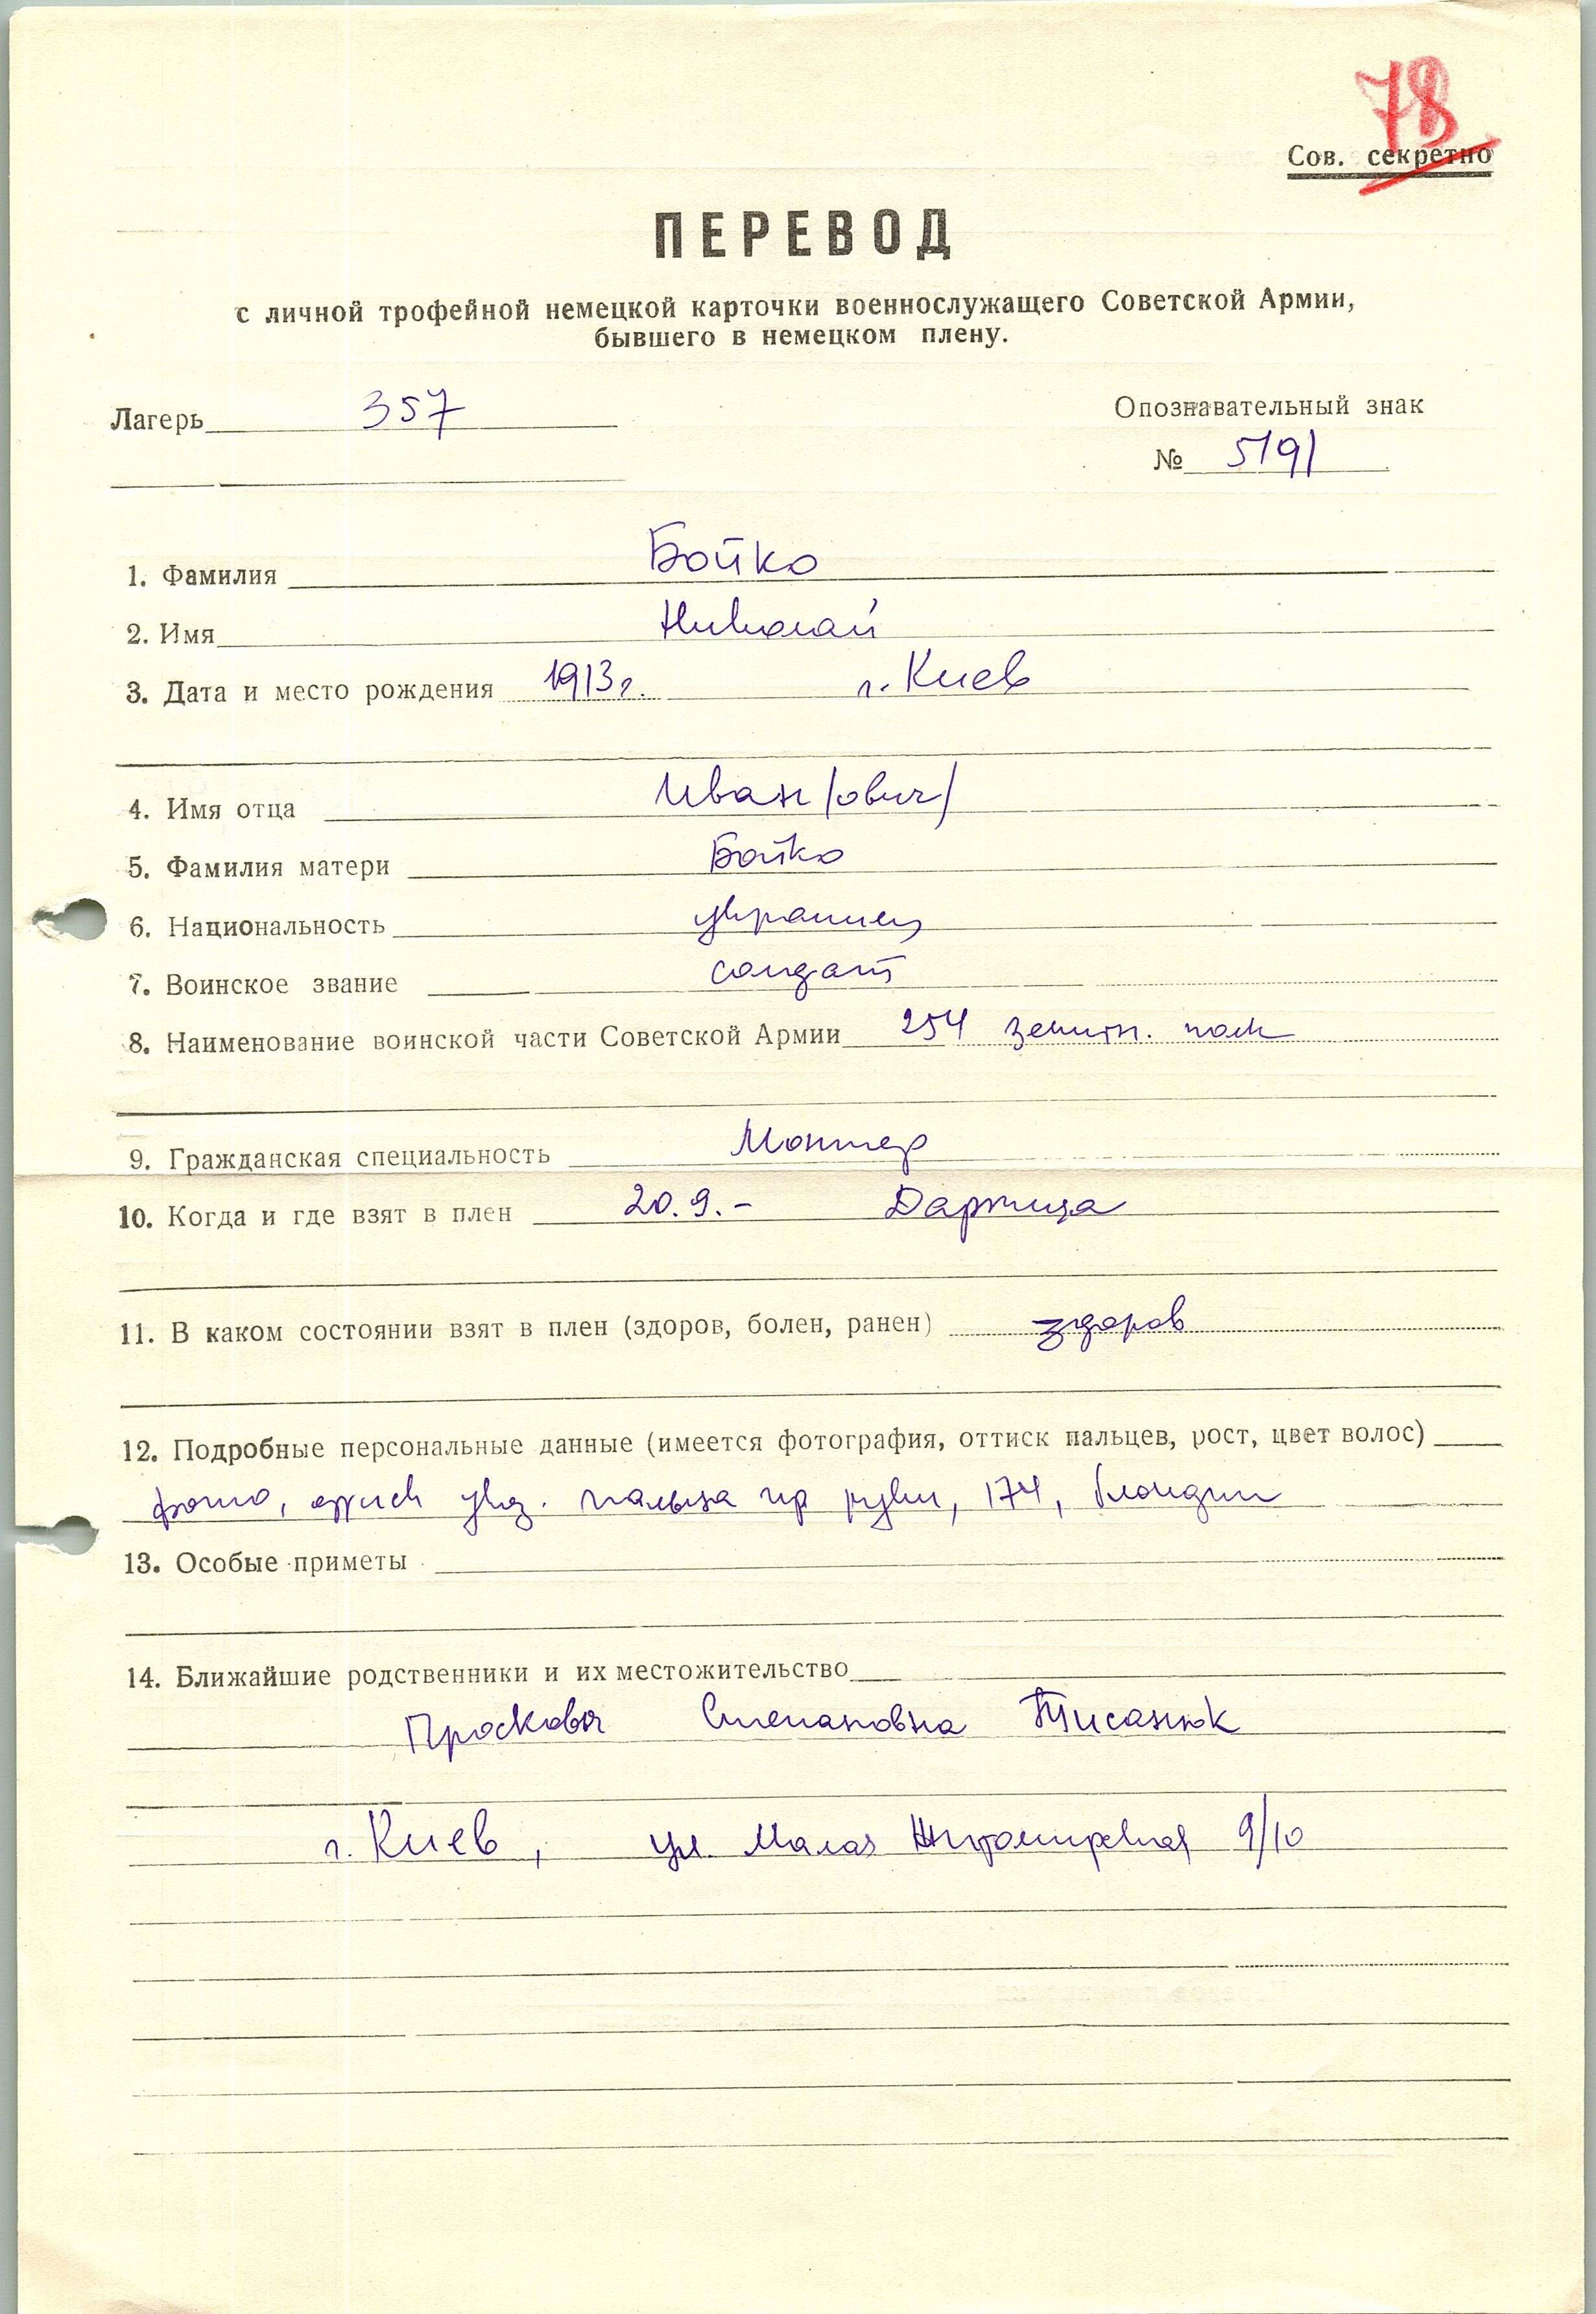 78
Сов. секретно
ПЕРЕВОД
с личной трофейной немецкой карточки военнослужащего Советской Армии,
бывшего в немецком плену.
Лагерь 357
Опознавательный знак
№ 5191
1. Фамилия Бойко
2. Имя Николай
3. Дата и место рождения 1913г. г. Киев
4. Имя отца Иван/ович/
5. Фамилия матери Бойко
6. Национальность украинец
7. Воинское звание солдат
8. Наименование воинской части Советской Армии 254 зенитн. полк
9. Гражданская специальность Монтер
10. Когда и где взят в плен 20.9.- Дарница
11. В каком состоянии взят в плен (здоров, болен, ранен) здоров
12. Подробные персональные данные (имеется фотография, оттиск пальцев, рост, цвет волос)
фото, оттиск указ. пальца пр руки, 174, блондин
13. Особые приметы
14. Ближайшие родственники и их местожительство
Просковья Степановна Тисанюк
г. Киев, ул. Малая Житомирская 9/10